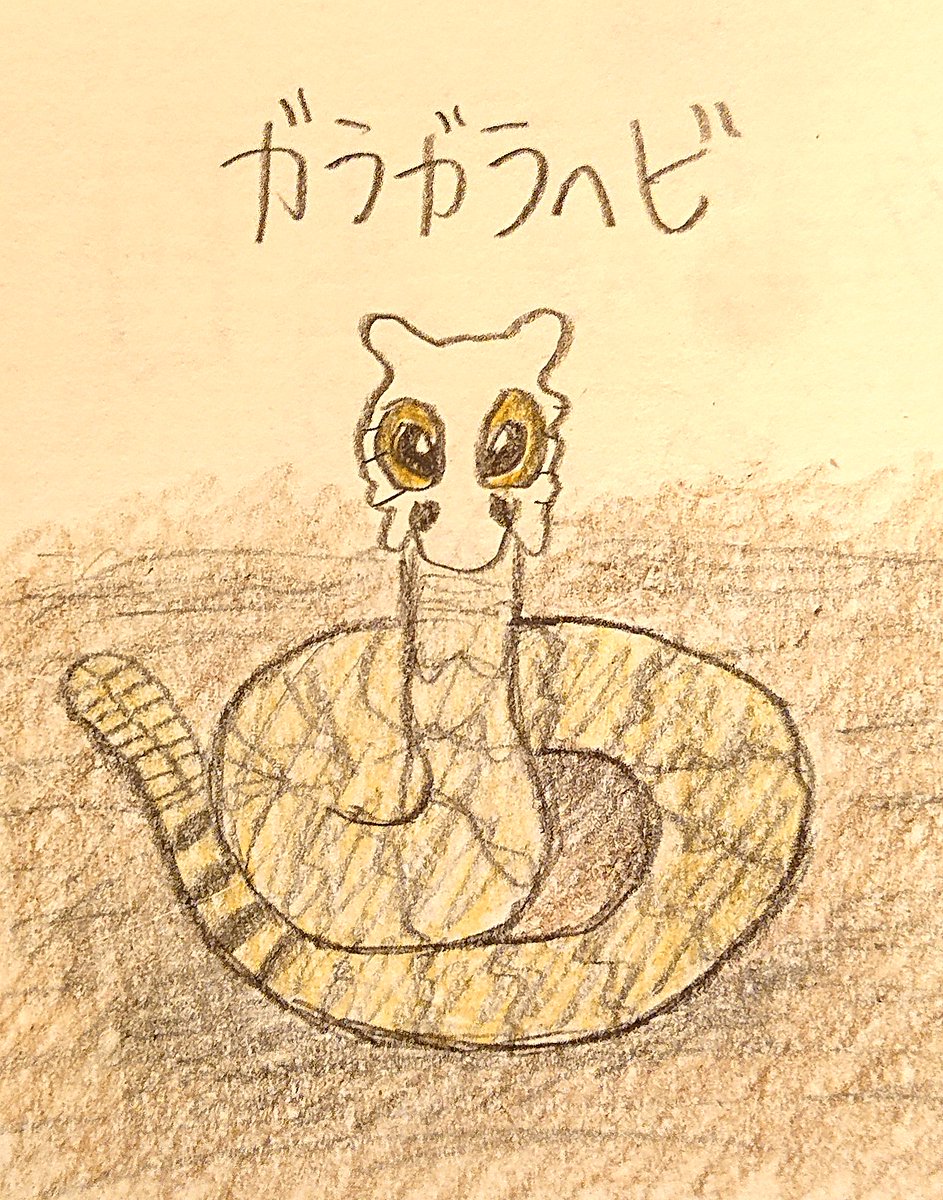 ガラガラヘビ